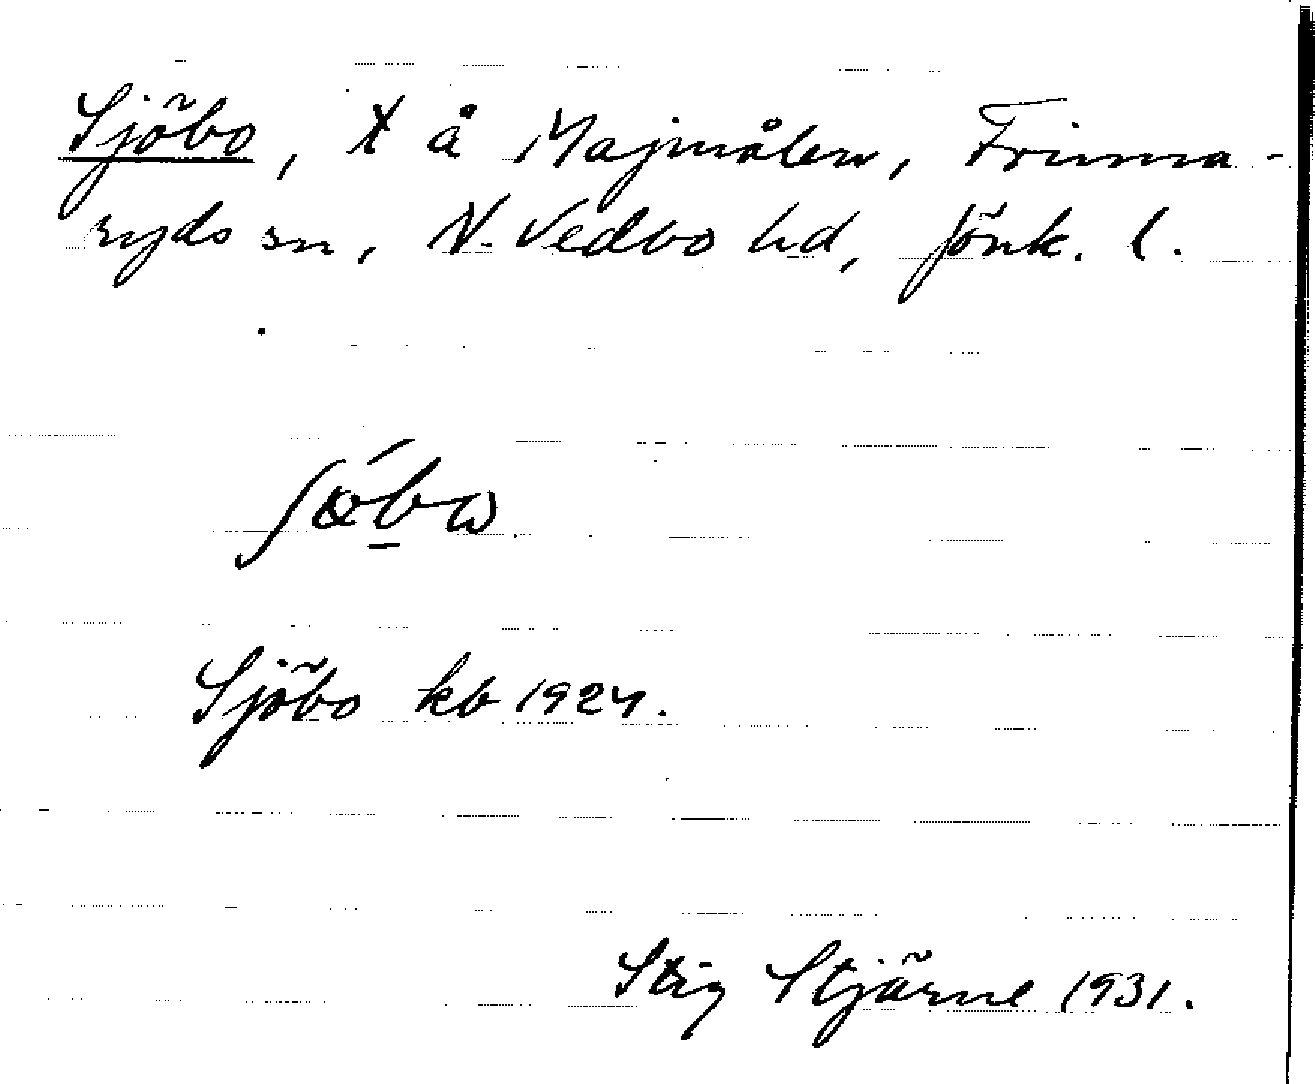 Sjöbo, X å Majmålen, Frinna-
ryds sn, N. Vedbo hd, Jönk. l.
Sjöbo kb 1924.
Stig Stjärne 1931.